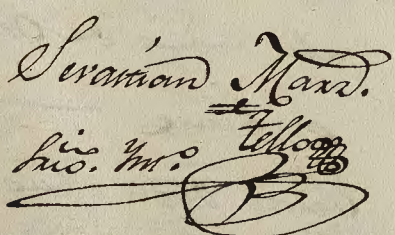 Sevastian Marz.
Tello
Srio. Yno.